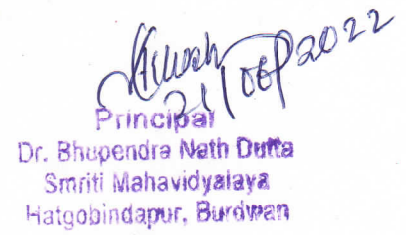 21/06/2022
Principal
Dr. Bhupendra Nath Dutta
Smriti Mahavidyalaya
Hatgobindapur, Burdwan